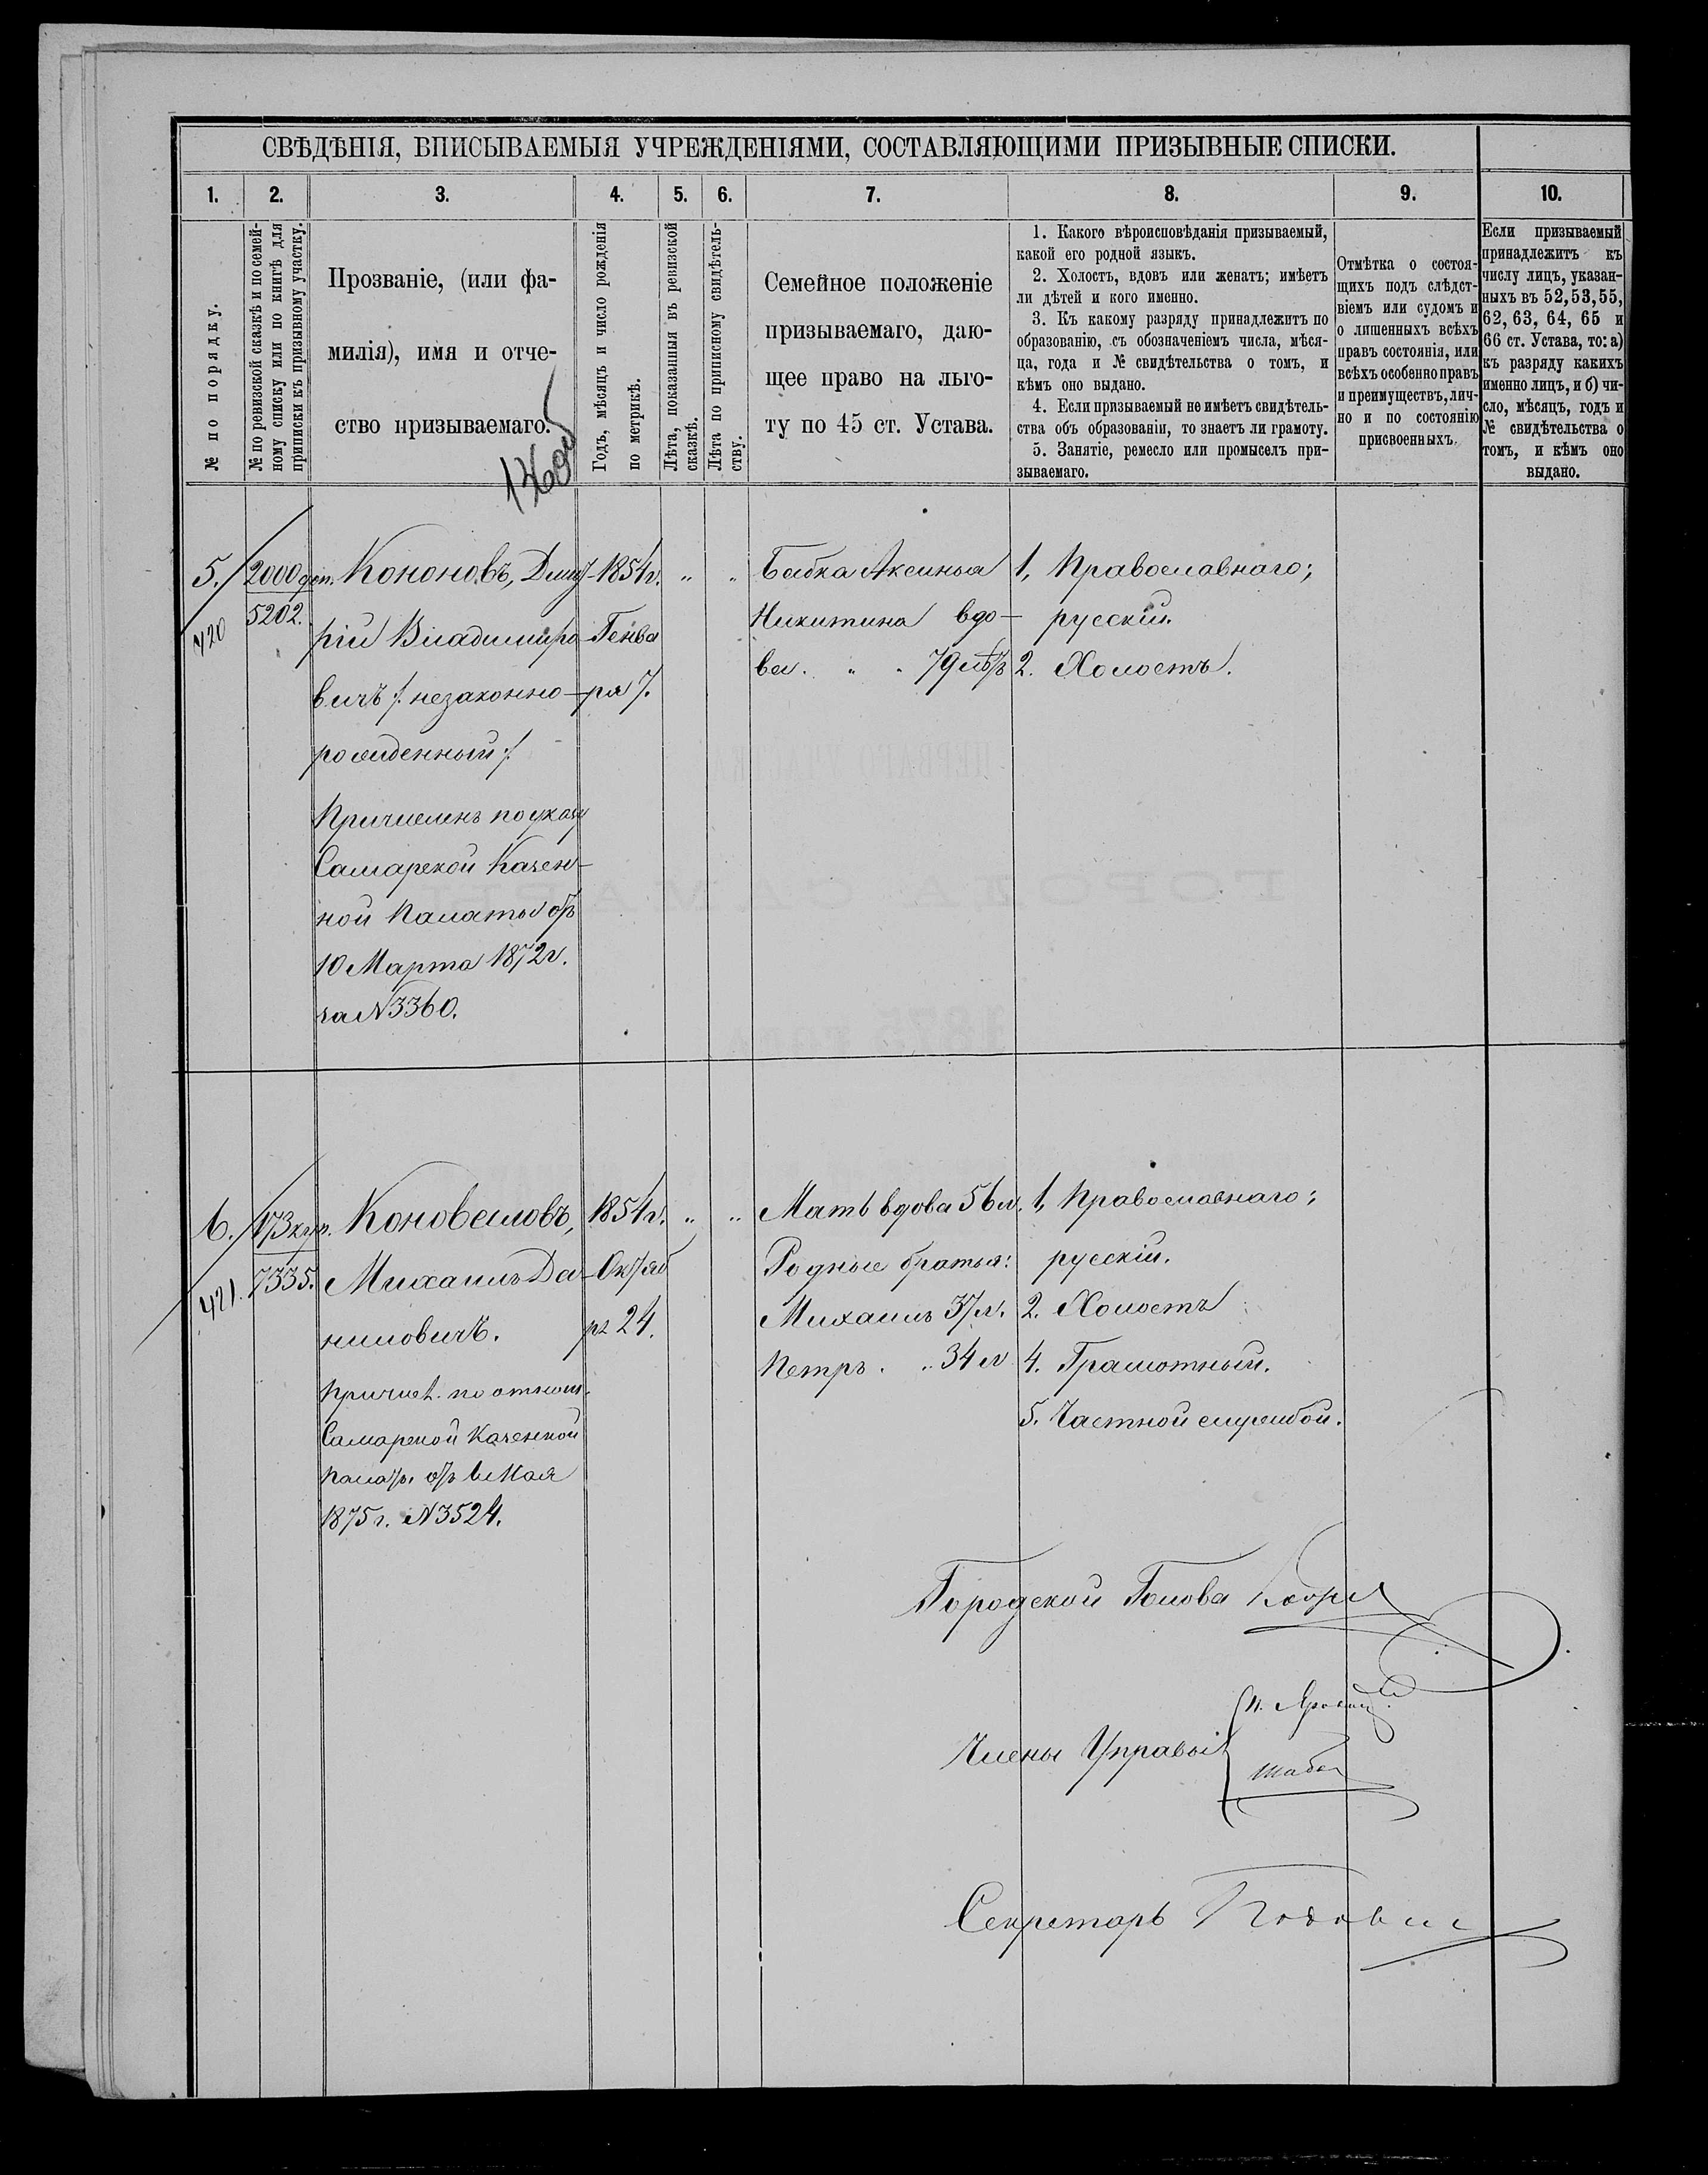 СВѢДѢНІЯ, ВПИСЫВАЕМЫЯ УЧРЕЖДЕНІЯМИ, СОСТАВЛЯЮЩИМИ ПРИЗЫВНЫЕ СПИСКИ.
1.
2.
3.
4.
5.
6.
7.
8.
9.
10.
№ по порядку.
№ по ревизской сказкѣ и по семей-
ному списку или по книгѣ для
приписки къ призывному участку.
Прозваніе, (или фа-
милія), имя и отче-
ство призываемаго.
Годъ, мѣсяцъ и число рожденія
по метрикѣ.
Лѣта, показанныя въ ревизской
сказкѣ.
Лѣта по приписному свидѣтель-
ству.
Семейное положеніе
призываемаго, даю-
щее право на льго-
ту по 45 ст. Устава.
1. Какого вѣроисповѣданія призываемый,
какой его родной языкъ.
2. Холостъ, вдовъ или женатъ; имѣетъ
ли дѣтей и кого именно.
3. Къ какому разряду принадлежитъ по
образованію, съ обозначеніемъ числа, мѣся-
ца, года и № свидѣтельства о томъ, и
кѣмъ оно выдано.
4. Если призываемый не имѣетъ свидѣтель-
ства объ образованіи, то знаетъ ли грамоту.
5. Занятіе, ремесло или промыселъ при-
зываемаго.
Отмѣтка о состоя-
щихъ подъ слѣдст-
віемъ или судомъ и
о лишенныхъ всѣхъ
правъ состоянія, или
всѣхъ особенно правъ
и преимуществъ, лич-
но и по состоянію
присвоенныхъ.
Если призываемый
принадлежитъ къ
числу лицъ, указан-
ныхъ въ 52, 53, 55,
62, 63, 64, 65 и
66 ст. Устава, то: а)
къ разряду какихъ
именно лицъ, и б) чи-
сло, мѣсяцъ, годъ и
№ свидѣтельства о
томъ, и кѣмъ оно
выдано.
5.
420
2000 доп.
5202.
Кононовъ, Дмит-
рій Владиміро-
вичъ /: незаконно-
рожденный :/
Причисленъ по указу
Самарской Казен-
ной Палаты отъ
10 Марта 1872 г.
за № 3360.
1854 г.
Генва
ря 7.
" "
Бабка Аксинья
Никитина вдо-
ва. " . 79 лѣтъ
1, Православнаго;
русскій.
2. Холостъ.
6.
421.
173 куп.
7335.
Коноваловъ,
Михаилъ Да-
ниловичъ.
Причисл. по отнош.
Самарской Казенной
Палат. отъ 6 Мая
1875 г. № 3524.
1854 г.
Октяб
ря 24.
" "
Мать вдова 56 л.
Родные братья:
Михаилъ 37 л.
Петръ . .. 34 л
1, Православнаго;
русскій.
2. Холостъ
4. Грамотный.
5. Частной службой.
Городской Голова
Члены Управы
Секретарь